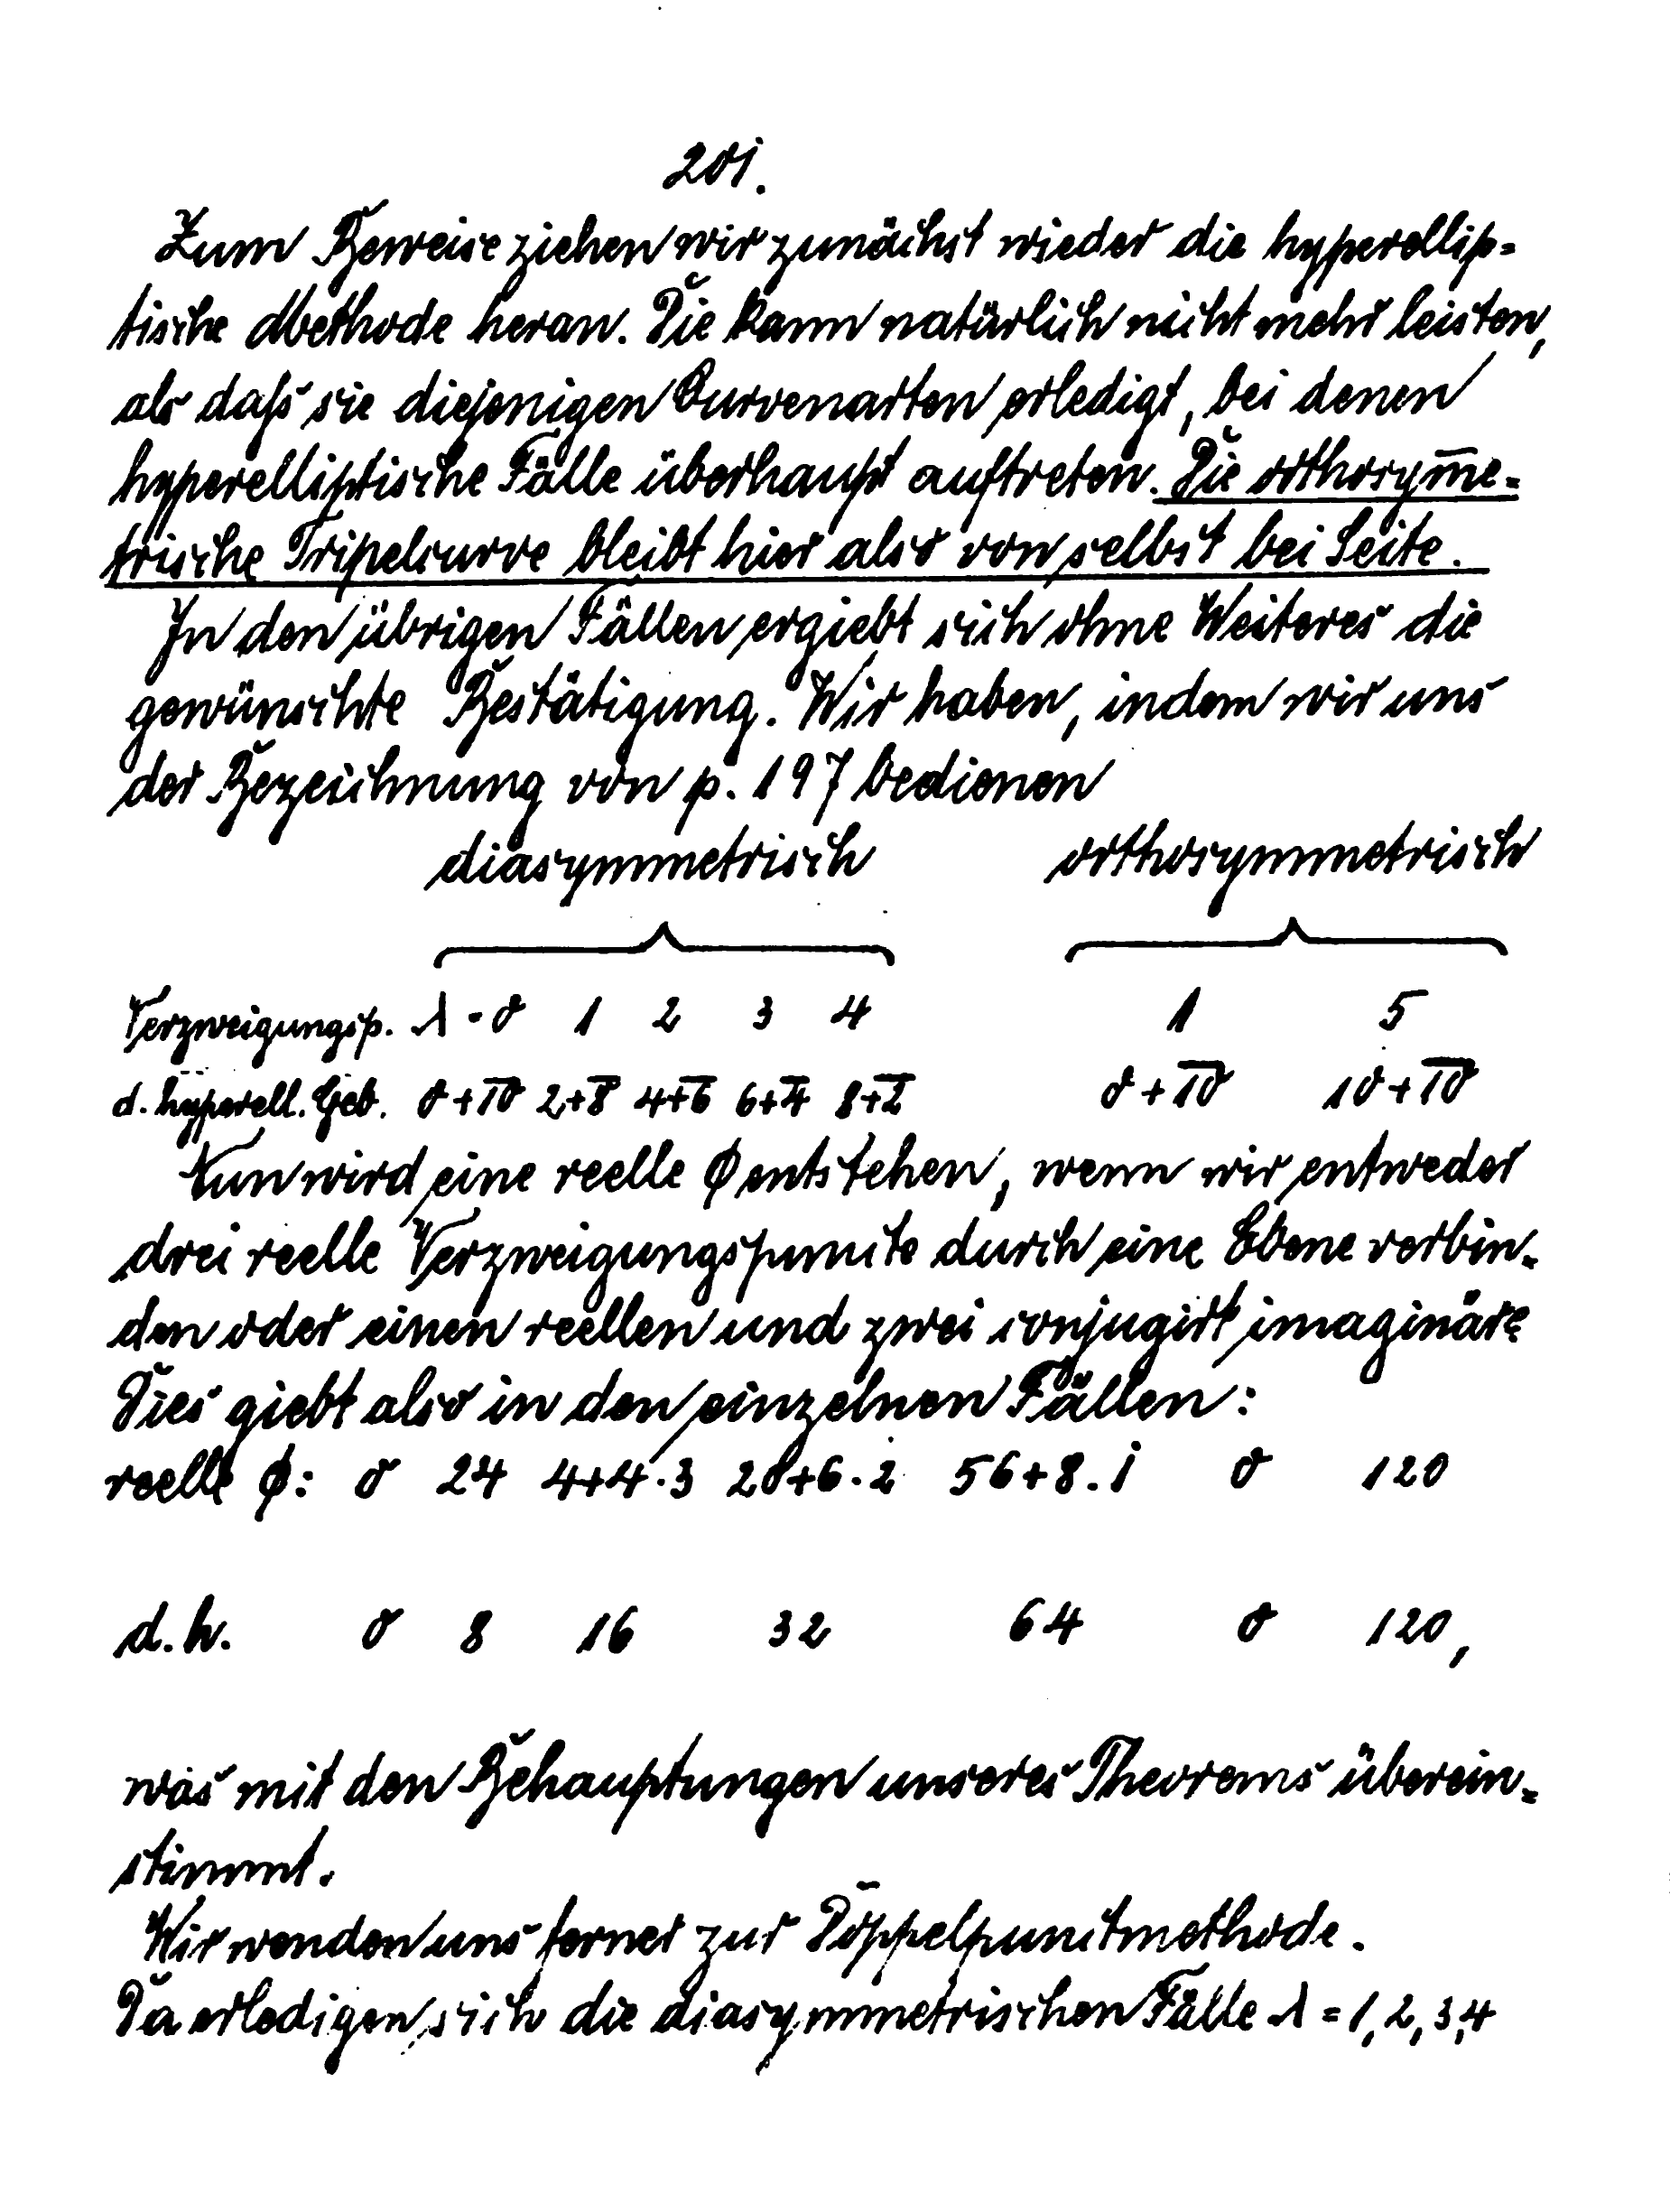 201.
Zum Beweise ziehen wir zunächst wieder die hyperellip-
tische Methode heran. Die kann natürlich nicht mehr leisten,
als daß sie diejenigen Curvenarten erledigt, bei denen
hyperelliptische Fälle überhaupt auftreten. Die orthosym̅e-
trische Tripelcurve bleibt hier also von selbst bei Seite.
In den übrigen Fällen ergiebt sich ohne Weiteres die
gewünschte Bestätigung. Wir haben, indem wir uns
der Bezeichnung von p. 197 bedienen
diasymmetrisch orthosymmetrisch
Verzweigungsp. λ = 0 1 2 3 4 1 5
d. hyperell. Geb. 0+1̅0̅ 2+8̅ 4+6̅ 6+4̅ 8+2̅ 0+1̅0̅ 10+1̅0̅
Nun wird eine reelle ϕ entstehen, wenn wir entweder
drei reelle Verzweigungspuncte durch eine Ebene verbin-
den oder einen reellen und zwei conjugirt imaginäre
Dies giebt also in den einzelnen Fällen:
reelle ϕ: 0 24 4+4·3 20+6·2 56+8.1 0 120
d.h. 0 8 16 32 64 0 120,
was mit den Behauptungen unseres Theorems überein-
stimmt.
Wir wenden uns ferner zur Doppelpunctmethode.
Da erledigen sich die diasymmetrischen Fälle λ = 1, 2, 3, 4